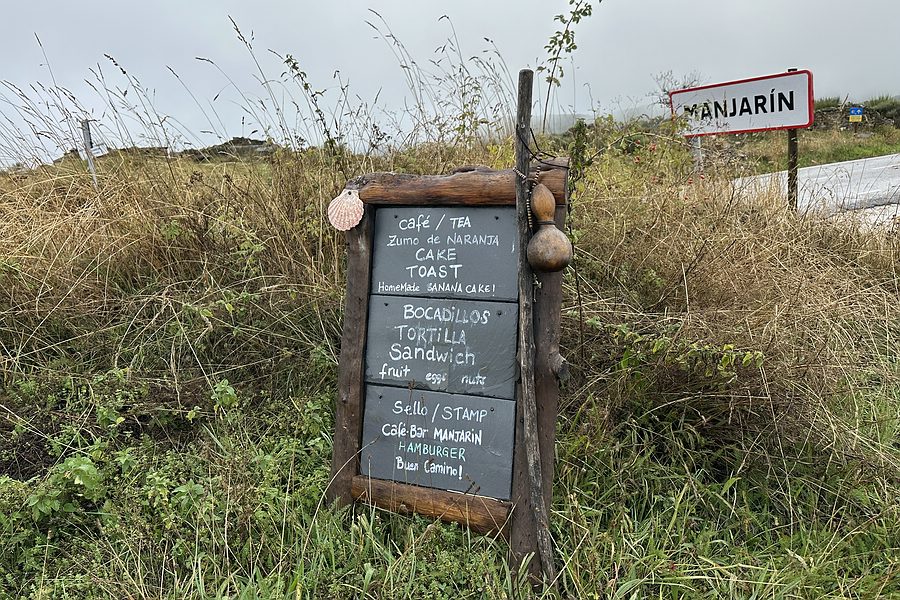 MANJARÍN
café / TEA
Zumo de NARANJA
CAKE
TOAST
HomeMade BANANA CAKE!
BOCADiLLOS
TORTiLLA
Sandwich
fruit eggs nuts
Sello / STAMP
Café-Bar MANJARiN
HAMBURGER
Buen Camino!